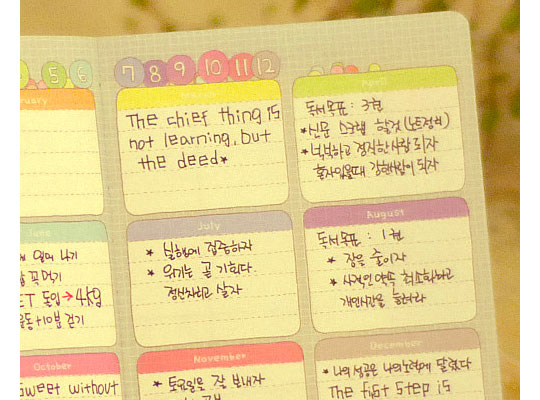 5 6 7 8 9 10 11 12
ruary
The chief thing is
not learning, but
the deed★
April
독서목표 : 3권
★신문 스크랩 할것 (노트정리)
정직한 사람 되자
혼자있을때 강한사람이 되자
June
일어 나기
꼭 먹기
ET 돌입 → 4kg
운동 +10분 걷기
July
★ 실행에 집중하자
★ 위기는 곧 기회다.
정신차리고 살자
August
독서목표 : 1권
★ 잠을 줄이자
★ 사적인 약속 최소화하고
개인시간을 늘려라
October
sweet without
November
★ 토요일은 잘 보내자
December
★ 나의 성공은 나의 노력에 달렸다
The first step is